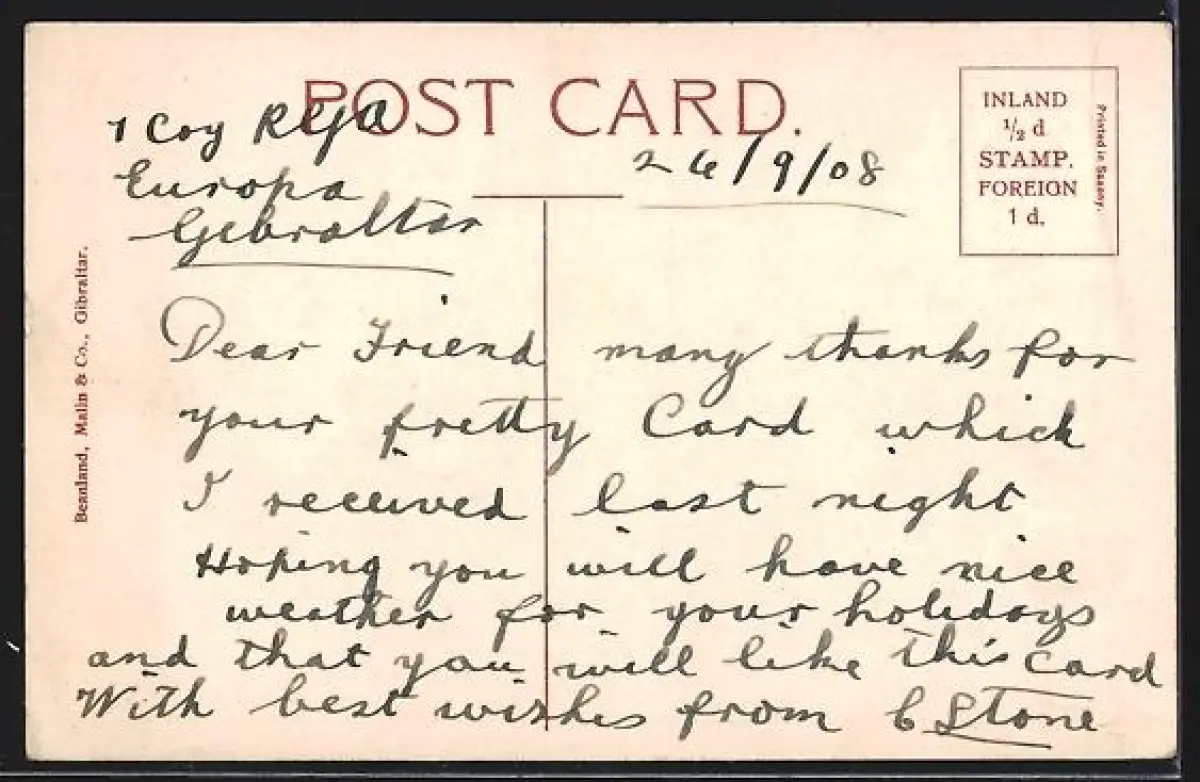 POST CARD.
INLAND
½ d
STAMP.
FOREIGN
1 d.
Printed in Saxony.
Beanland, Malin & Co., Gibraltar.
Coy RGA
Europa
Gibraltar
26/9/08
Dear Friend many thanks for
your pretty Card which
I received last night
Hoping you will have nice
weather for your holidays
and that you will like this card
With best wishes from C Stone